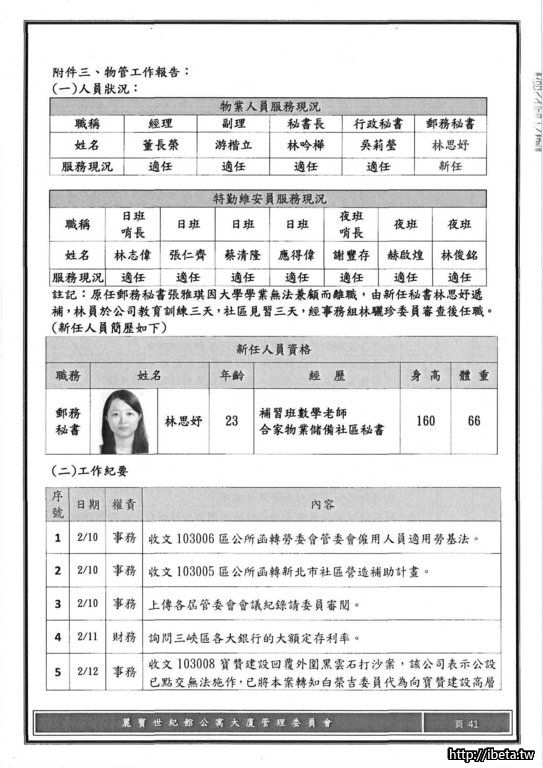 附件三、物管工作報告：
(一)人員狀況：
物業人員服務現況
職稱 經理 副理 秘書長 行政秘書 郵務秘書
姓名 董長榮 游楷立 林吟樺 吳莉瑩 林思妤
服務現況 適任 適任 適任 適任 新任
特勤維安員服務現況
職稱 日班哨長 日班 日班 日班 夜班哨長 夜班 夜班
姓名 林志偉 張仁齊 蔡清隆 應得偉 謝豐存 赫啟煌 林俊銘
服務現況 適任 適任 適任 適任 適任 適任 適任
註記：原任郵務秘書張雅琪因大學學業無法兼顧而離職，由新任秘書林思妤遞
補，林員於公司教育訓練三天，社區見習三天，經事務組林驪珍委員審查後任職。
(新任人員簡歷如下)
新任人員資格
職務 姓名 年齡 經歷 身高 體重
郵務秘書 林思妤 23 補習班數學老師 160 66
合家物業儲備社區秘書
(二)工作紀要
序號 日期 權責 內容
1 2/10 事務 收文 103006 區公所函轉勞委會管委會僱用人員適用勞基法。
2 2/10 事務 收文 103005 區公所函轉新北市社區營造補助計畫。
3 2/10 事務 上傳各屆管委會會議紀錄請委員審閱。
4 2/11 財務 詢問三峽區各大銀行的大額定存利率。
5 2/12 事務 收文 103008 寶贊建設回覆外圍黑雲石打沙案，該公司表示公設
已點交無法施作，已將本案轉知白榮吉委員代為向寶贊建設高層
麗寶世紀館公寓大廈管理委員會 頁 41
http://ibeta.tw